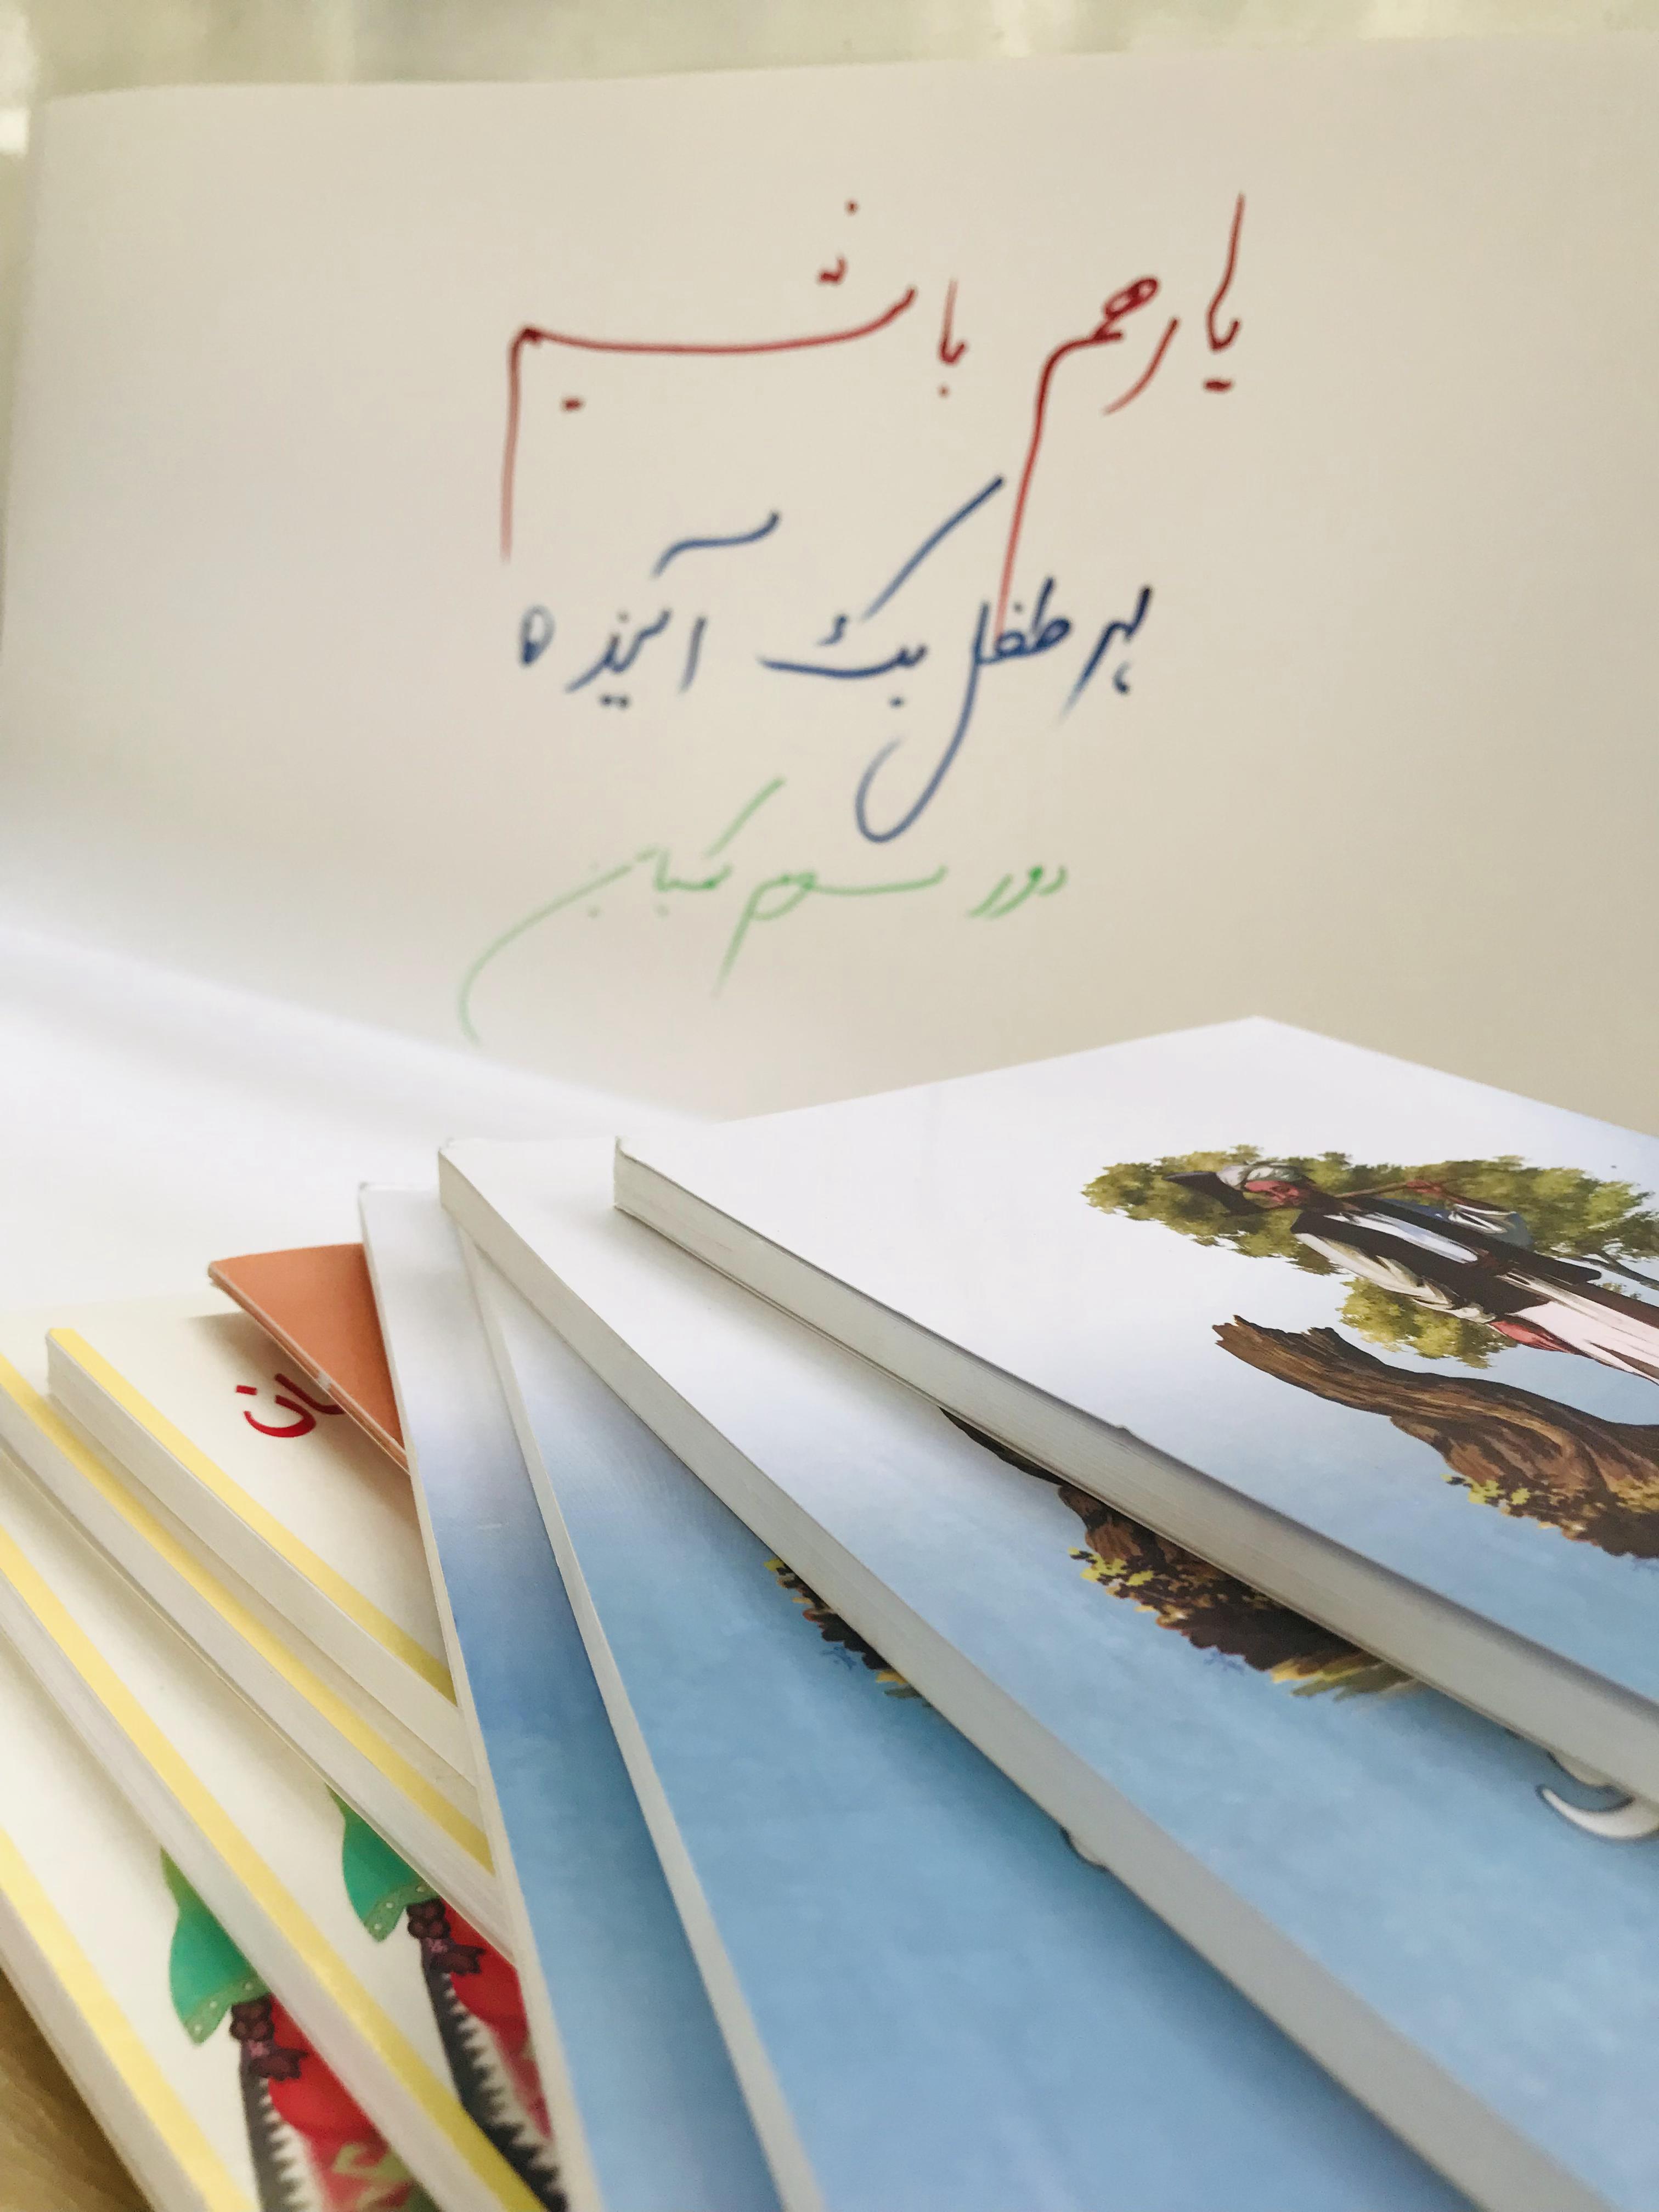 یار هم باشیم
هر طفل یک آینده
دور سوم کمپاین